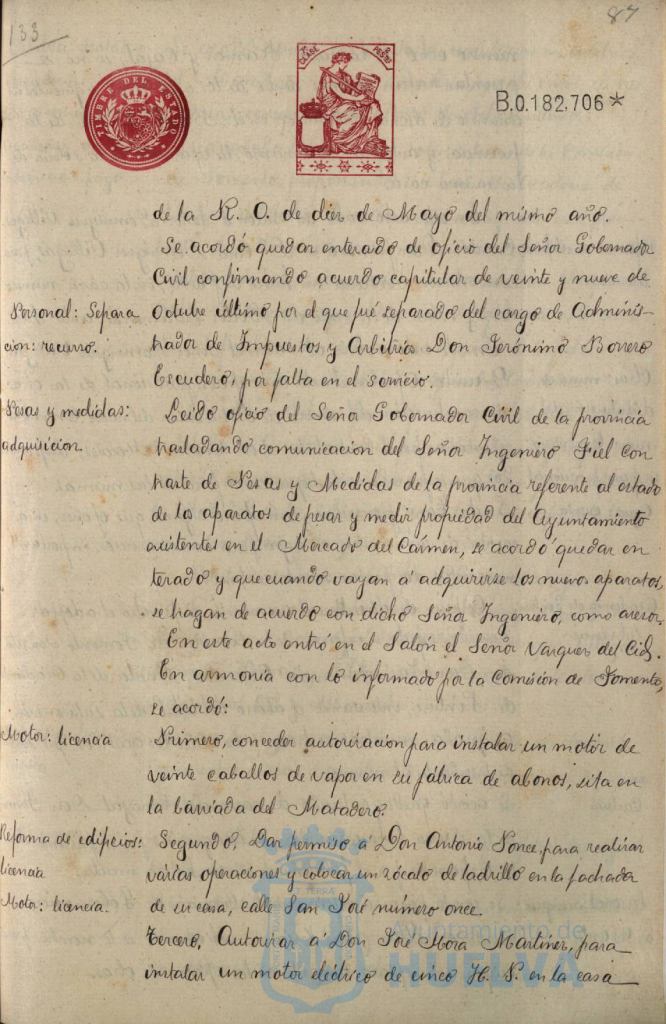 133
87
TIMBRE DEL ESTADO
CLASE
PESETAS
B.0.182.706*
de la R. O. de diez de Mayo del mismo año.
Se acordó quedar enterado de oficio del Señor Gobernador
Civil confirmando acuerdo capitular de veinte y nueve de
Personal: Separa
octubre último por el que fué separado del cargo de Adminis-
cion: recurso.
trador de Impuestos y Arbitrios Don Jerónimo Borrero
Escudero, por falta en el servicio.
Pesas y medidas:
Leido oficio del Señor Gobernador Civil de la provincia
adquisicion
trasladando comunicacion del Señor Ingeniero Fiel Con
traste de Pesas y Medidas de la provincia referente al estado
de los aparatos de pesar y medir propiedad del Ayuntamiento
existentes en el Mercado del Cármen, se acordó quedar en
terado y que cuando vayan á adquirirse los nuevos aparatos,
se hagan de acuerdo con dicho Señor Ingeniero, como asesor.
En este acto entró en el Salón el Señor Vazquez del Cid.
En armonía con lo informado por la Comisión de Fomento,
se acordó:
Motor: licencia
Primero, conceder autorización para instalar un motor de
veinte caballos de vapor en su fábrica de abonos, sita en
la barriada del Matadero.
Reforma de edificios:
Segundo, Dar permiso á Don Antonio Ponce, para realizar
licencia
várias operaciones y colocar un zócalo de ladrillo en la fachada
Motor: licencia.
de su casa, calle San José número once.
Tercero, Autorizar á Don José Mora Martinez, para
instalar un motor eléctrico de cinco H. P. en la casa
Ayuntamiento de
HUELVA